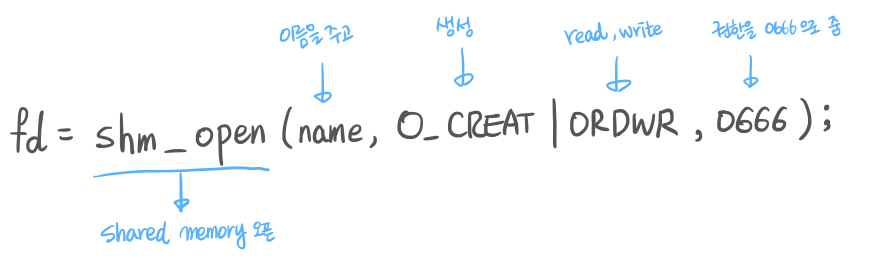 이름을 주고 생성 read, write 권한을 0666으로 줌
fd = shm_open (name, O_CREAT | ORDWR, 0666);
shared memory 오픈